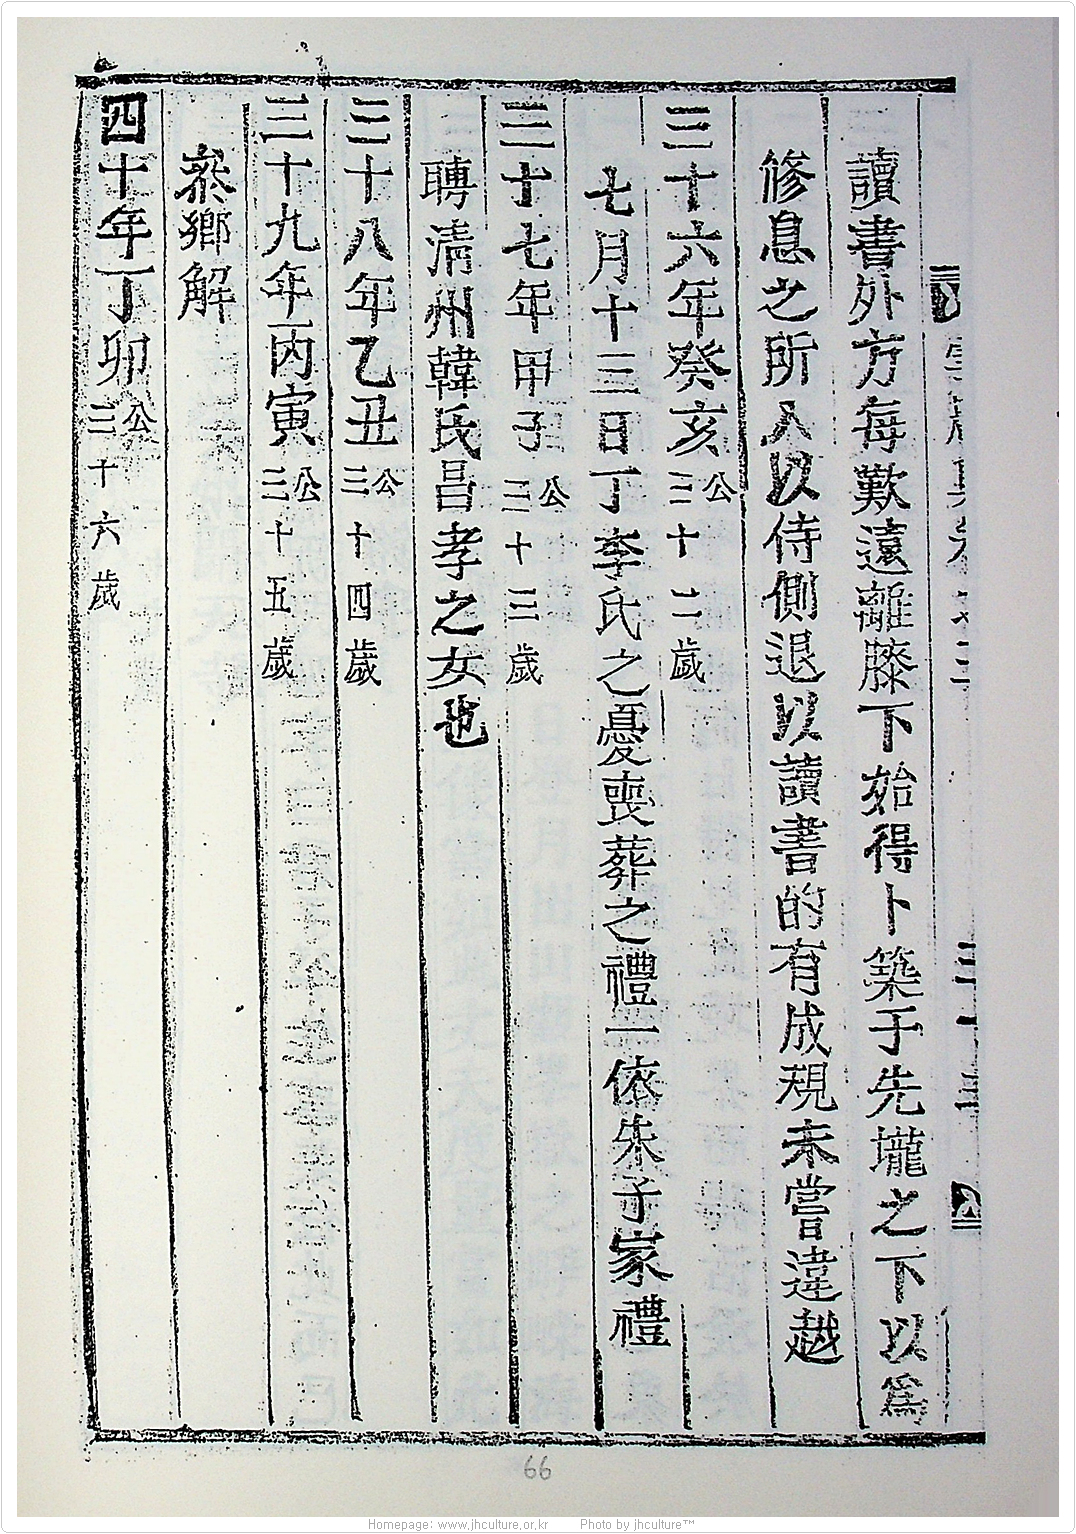 讀書外方每歎遠離膝下始得卜築于先壠之下以爲
修息之所入以侍側退以讀書的有成規未嘗違越
三十六年癸亥公三十二歲
七月十三日丁李氏之憂喪葬之禮一依朱子家禮
三十七年甲子公三十三歲
聘清州韓氏昌孝之女也
三十八年乙丑公三十四歲
三十九年丙寅公三十五歲
叅鄉解
四十年丁卯公三十六歲
66
Homepage: www.jhculture.or.kr Photo by jhculture™